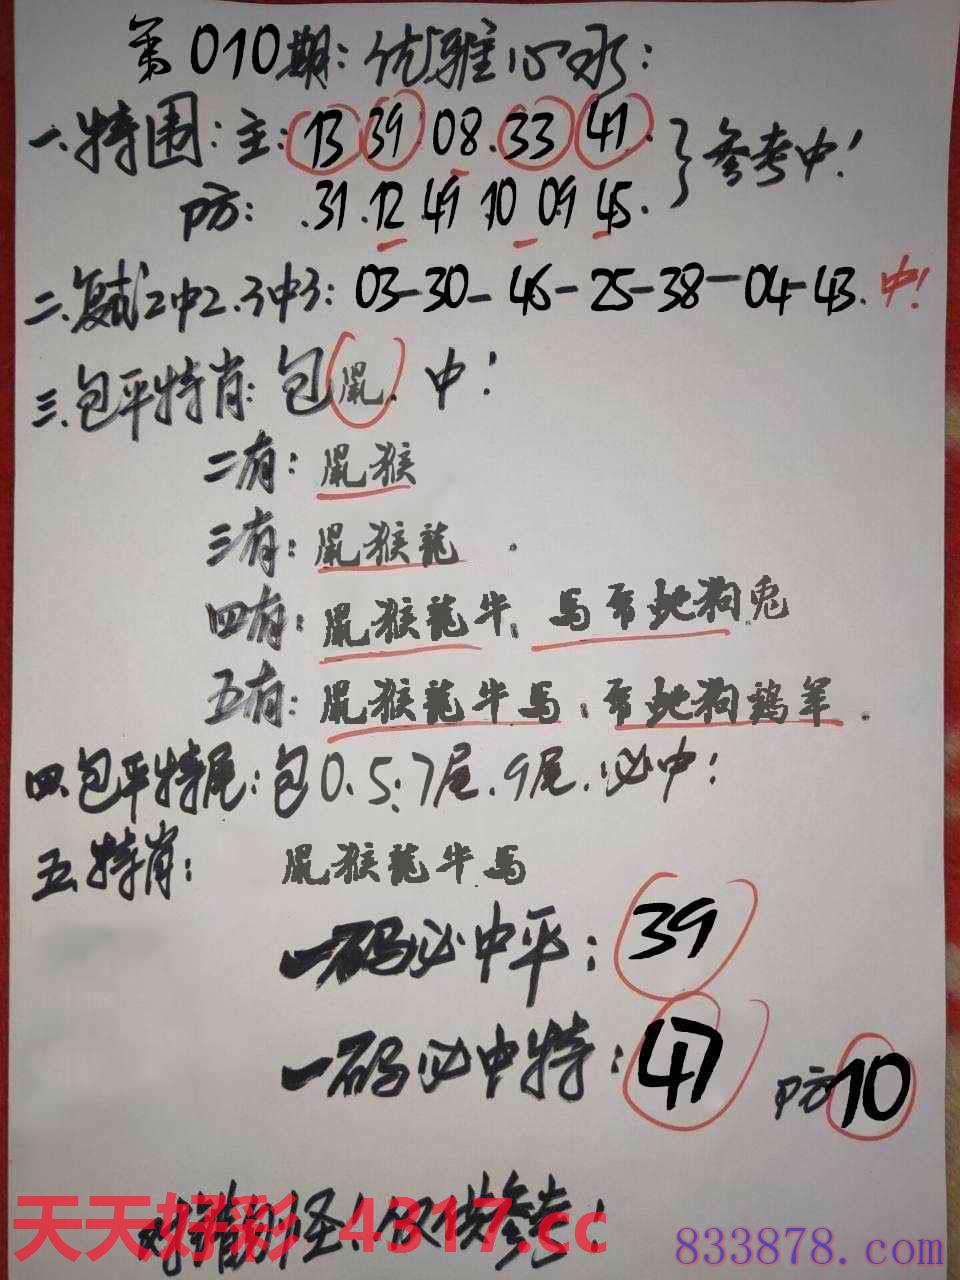 第010期:优雅心水:
一.特围:主:13 39 08.33 47.
防:.31.12 49 10 09 45.
}参考中!
二.复式2中2.3中3:03-30-46-25-38-04-43.中!
三.包平特肖:包鼠.中!
二有:鼠猴
三有:鼠猴龍.
四有:鼠猴龍牛.馬 蛇狗兔
五有:鼠猴龍牛馬: 蛇狗鷄羊.
四.包平特尾:包0.5:7尾.9尾.必中!
五.特肖:鼠猴龍牛馬
一码必中平:39
一码必中特:47 防10
对错勿怪!仅供参考!
天天好彩 4317.cc
833878.com